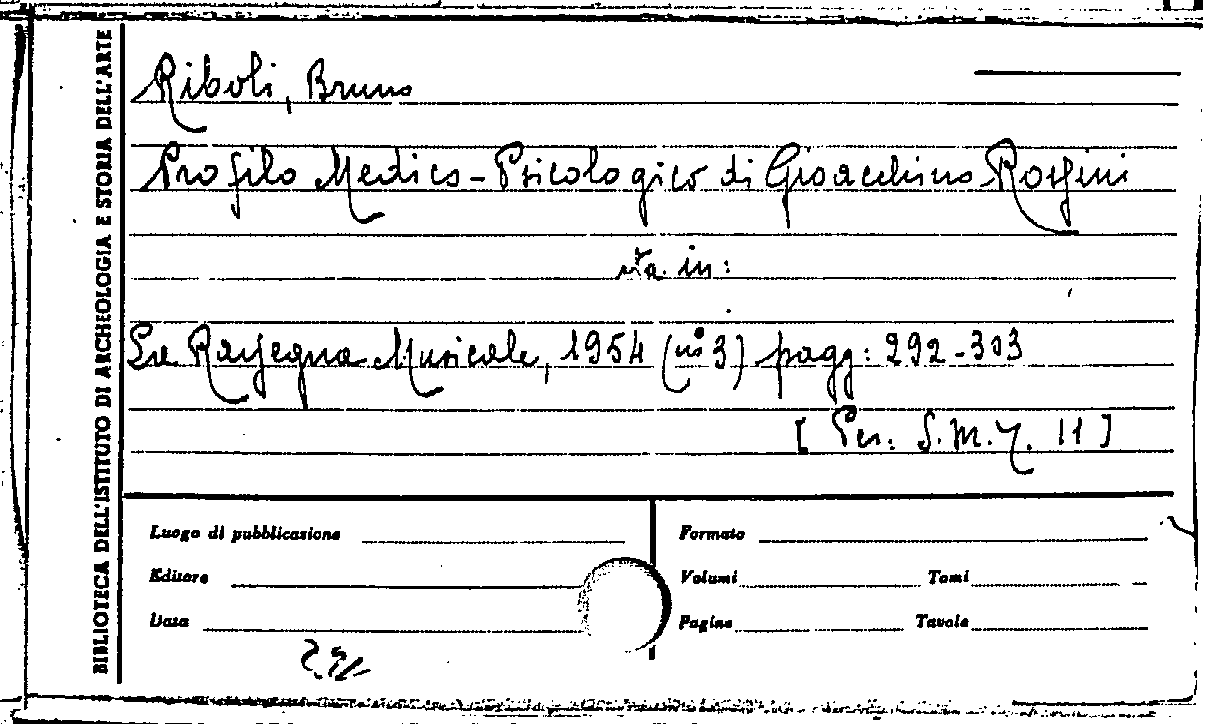 BIBLIOTECA DELL'ISTITUTO DI ARCHEOLOGIA E STORIA DELL'ARTE
Riboli, Bruno
Profilo Medico-Psicologico di Gioacchino Rossini
sta in:
La Rassegna Musicale, 1954 (n° 3) pagg: 292-303
[ Per. S.M.Y. 11 ]
Luogo di pubblicazione
Editore
Data
Formato
Volumi Tomi
Pagine Tavole